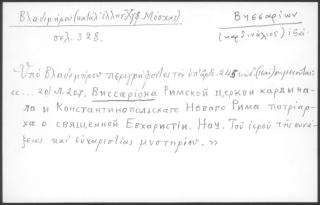 Βλαδιμήρου (κατάλ. ἑλλην. χφ. Μόσχας)
σελ. 328.
Βησσαρίων
(καρδινάλιος) ἰδέ.
Ὑπὸ Βλαδιμήρου περιγράφοντος τὸν ὑπ' ἀριθ. 245 κώδ. σημειοῦται:
«... 20) л. 207. Виссаріона Римской церкви кардына-
ла и Константинопольскаго Новаго Рима патріар-
ха о священной Евхаристіи. Нач. Τοῦ ἱεροῦ τῆς συνά-
ξεως καὶ εὐχαριστίας μυστηρίου. »